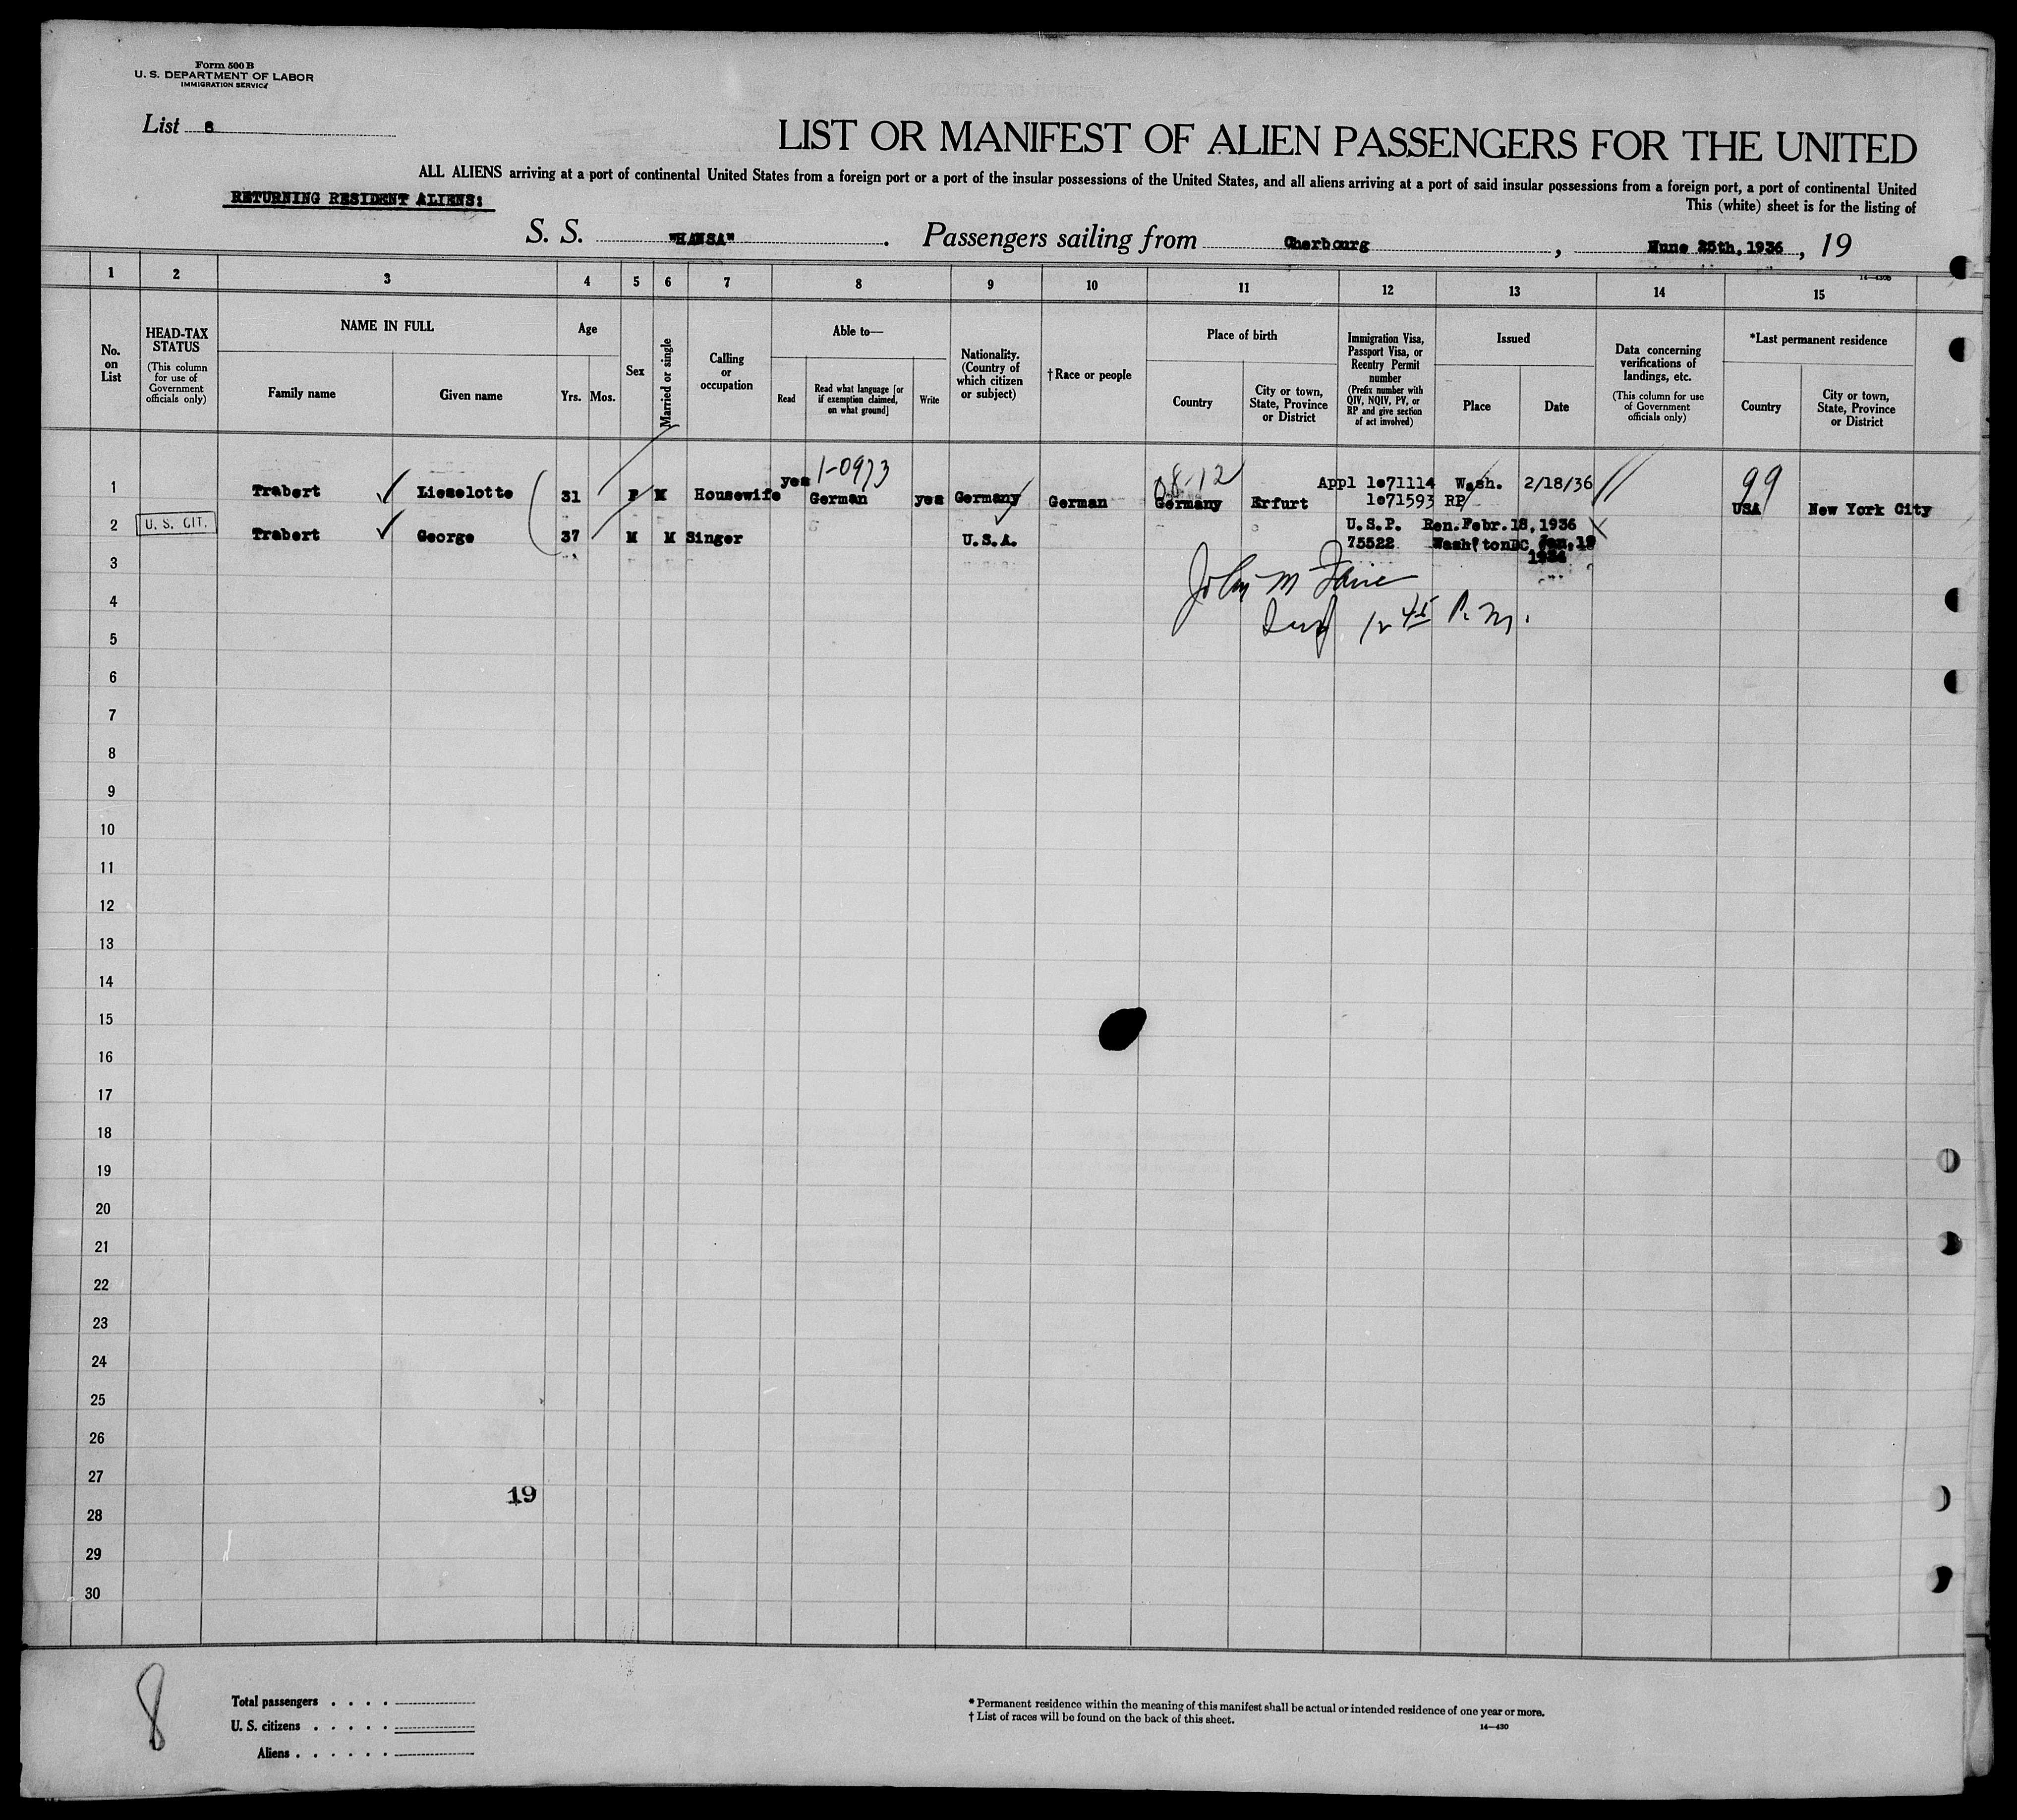 Form 500 B
U. S. DEPARTMENT OF LABOR
IMMIGRATION SERVICE
List 8
LIST OR MANIFEST OF ALIEN PASSENGERS FOR THE UNITED
ALL ALIENS arriving at a port of continental United States from a foreign port or a port of the insular possessions of the United States, and all aliens arriving at a port of said insular possessions from a foreign port, a port of continental United
RETURNING RESIDENT ALIENS:
This (white) sheet is for the listing of
S. S. "HANSA". Passengers sailing from Cherbourg, 25th, 1936, 19
14—430b
1 2 3 4 5 6 7 8 9 10 11 12 13 14 15
No. on List
HEAD-TAX STATUS
(This column for use of Government officials only)
NAME IN FULL
Family name
Given name
Age
Yrs.
Mos.
Sex
Married or single
Calling or occupation
Able to—
Read
Read what language [or if exemption claimed, on what ground]
Write
Nationality. (Country of which citizen or subject)
†Race or people
Place of birth
Country
City or town, State, Province or District
Immigration Visa, Passport Visa, or Reentry Permit number
(Prefix number with QIV, NQIV, PV, or RP and give section of act involved)
Issued
Place
Date
Data concerning verifications of landings, etc.
(This column for use of Government officials only)
*Last permanent residence
Country
City or town, State, Province or District
1-0973
08-12
99
1 Trabert Lieselotte 31 F M Housewife yes German yes Germany German Germany Erfurt Appl 1o71114 Wash. 2/18/36 USA New York City
1o71593 RP
2 U. S. CIT. Trabert George 37 M M Singer U.S.A. U.S.P. Ren.Febr.18,1936
75522 Wash'tonDC Jan,19
3
John M
4
12 45 P. M.
5
6
7
8
9
10
11
12
13
14
15
16
17
18
19
20
21
22
23
24
25
26
27
19
28
29
30
8
Total passengers . . . .
U. S. citizens . . . . .
Aliens . . . . . .
* Permanent residence within the meaning of this manifest shall be actual or intended residence of one year or more.
† List of races will be found on the back of this sheet.
14—430